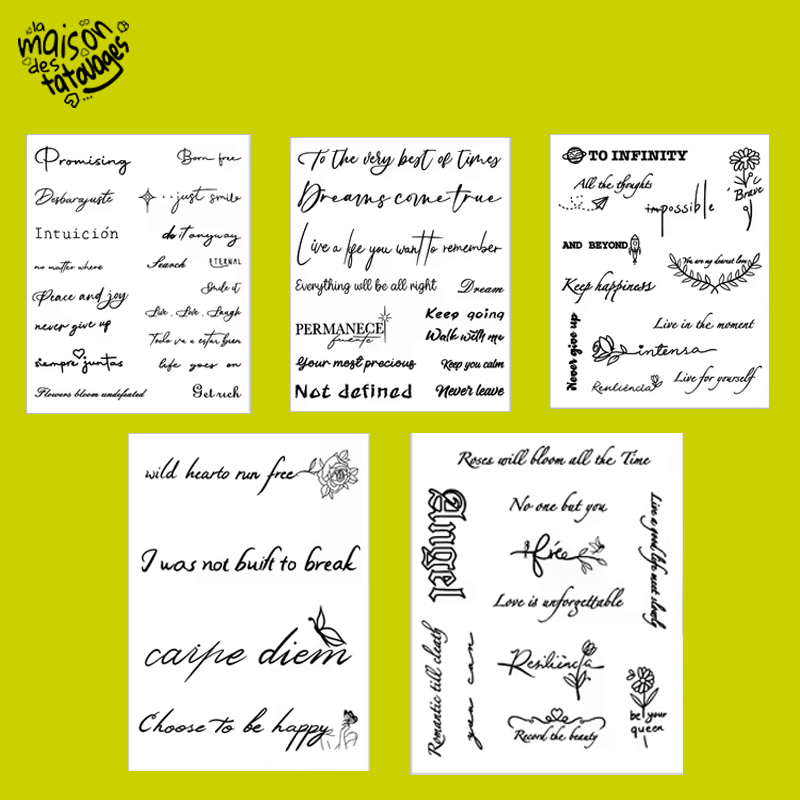 la
maison
des
tatouages
Promising
Born free
Desbarajuste
just smile
Intuición
do it anyway
no matter where
Search
ETERNAL
Smile it
Peace and joy
Live, Love, Laugh
never give up
Todo va a estar bien
siempre juntas
life goes on
Flowers bloom undefeated
Get rich
To the very best of times
Dreams come true
Live a life you want to remember
Everything will be all right
Dream
PERMANECE
fuerte
Keep going
Walk with me
Your most precious
Keep you calm
Not defined
Never leave
TO INFINITY
All the thoughts
impossible
Brave
AND BEYOND
You are my dearest love
Keep happiness
Never give up
Live in the moment
intensa
Resiliência
Live for yourself
wild hearts run free
I was not built to break
carpe diem
Choose to be happy
Roses will bloom all the Time
Angel
No one but you
Live a good life meet slowly
free
Love is unforgettable
Romantic till death
you can
Resiliência
be your
queen
Record the beauty